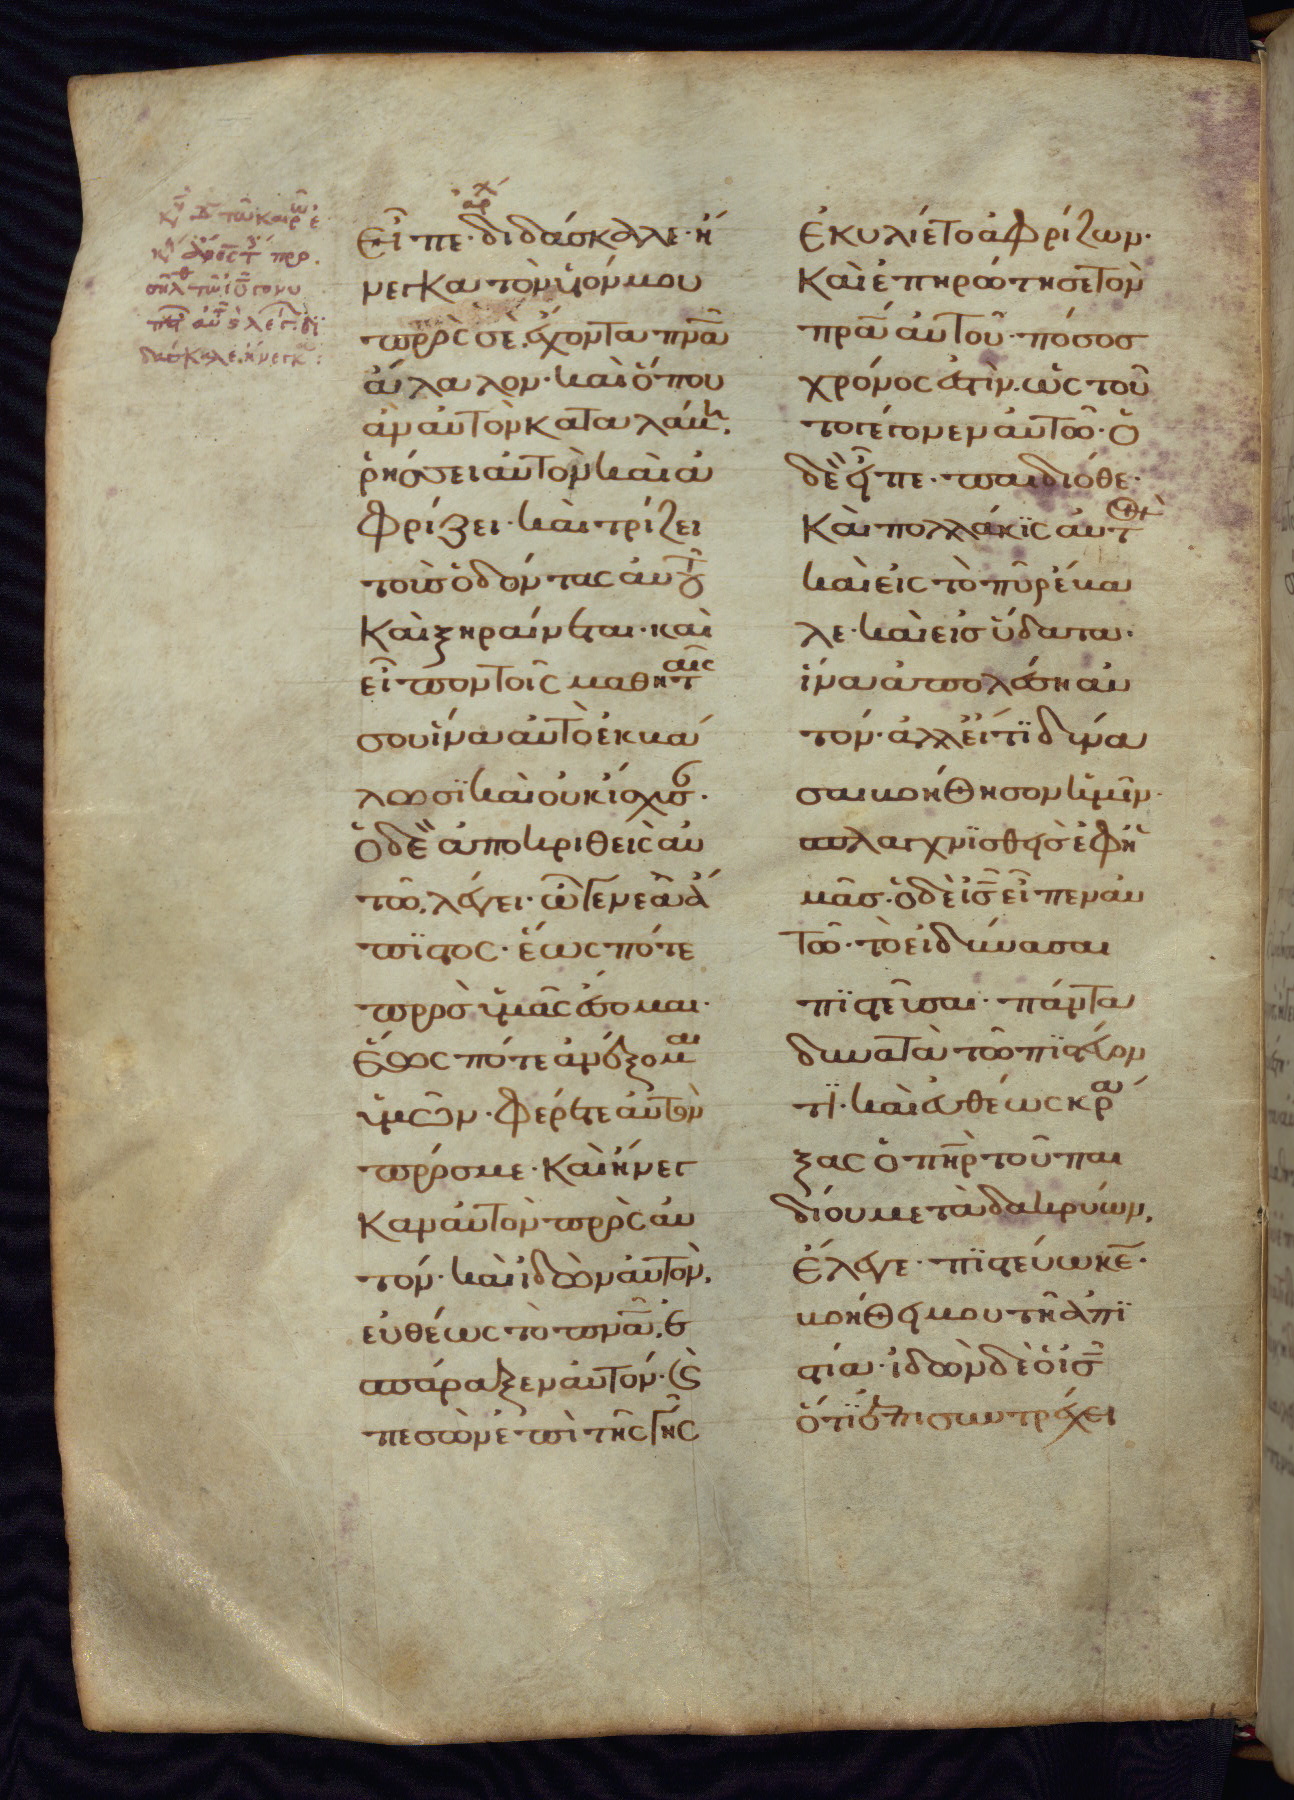 ἀρχ
Εἶπε· διδάσκαλε· ἤ
νεγκα τὸν υἱόν μου
πρὸς σὲ. ἔχοντα πνᾶ
ἄλαλον· καὶ ὅπου
ἂν αὐτὸν καταλάβη.
ῥήσσει αὐτὸν καὶ ἀ
φρίζει· καὶ τρίζει
τοὺς ὀδόντας αὐτοῦ
Καὶ ξηραίνεται· καὶ
εἶπον τοῖς μαθηταῖς
σου ἵνα αὐτὸ ἐκβά
λωσϊ καὶ οὐκ ἴσχυσ·
Ὁ δὲ ἀποκριθεὶς αὐ
τῶ. λέγει· ὦ γενεὰ ἄ
πϊστος· ἕως πότε
πρὸς ὑμᾶς ἔσομαι·
Ἕως πότε ἀνέξομαι
ὑμῶν· Φέρετε αὐτὸν
πρός με· Καὶ ἤνεγ
καν αὐτὸν πρὸς αὐ
τόν· καὶ ἰδὼν αὐτὸν.
εὐθέως τὸ πνᾶ. ἐ
σπάραξεν αὐτόν· καὶ
πεσὼν ἐπὶ τῆς γῆς
Ἐκυλίετο ἀφρίζων·
Καὶ ἐπηρώτησε τὸν
πρᾶ αὐτοῦ· πόσος
χρόνος ἐστὶν. ὡς τοῦ
το γέγονεν αὐτῶ· ὁ
δὲ εἶπε· παιδιόθε·
Καὶ πολλάκϊς αὐτὸν
καὶ εἰς τὸ πῦρ ἔβα
λε· καὶ εἰς ὕδατα·
ἵνα ἀπολέση αὐ
τόν· ἀλλ εἴ τϊ δύνα
σαι βοήθησον ἡμῖν·
σπλαγχνϊσθεὶς ἐφ ἡ
μᾶς· ὁ δὲ ις εἶπεν αὐ
τῶ· τὸ εἰ δύνασαι
πϊστεῦσαι· πάντα
δυνατὰ τῶ πϊστεύον
τϊ· καὶ εὐθέως κρά
ξας ὁ πηρ τοῦ παι
δίου μετὰ δακρύων.
ἔλεγε· πϊστεύω κε·
βοήθει μου τῆ ἀπϊ
στία· ἰδὼν δὲ ὁ ις
ὅτϊ ἐπισυντρέχει